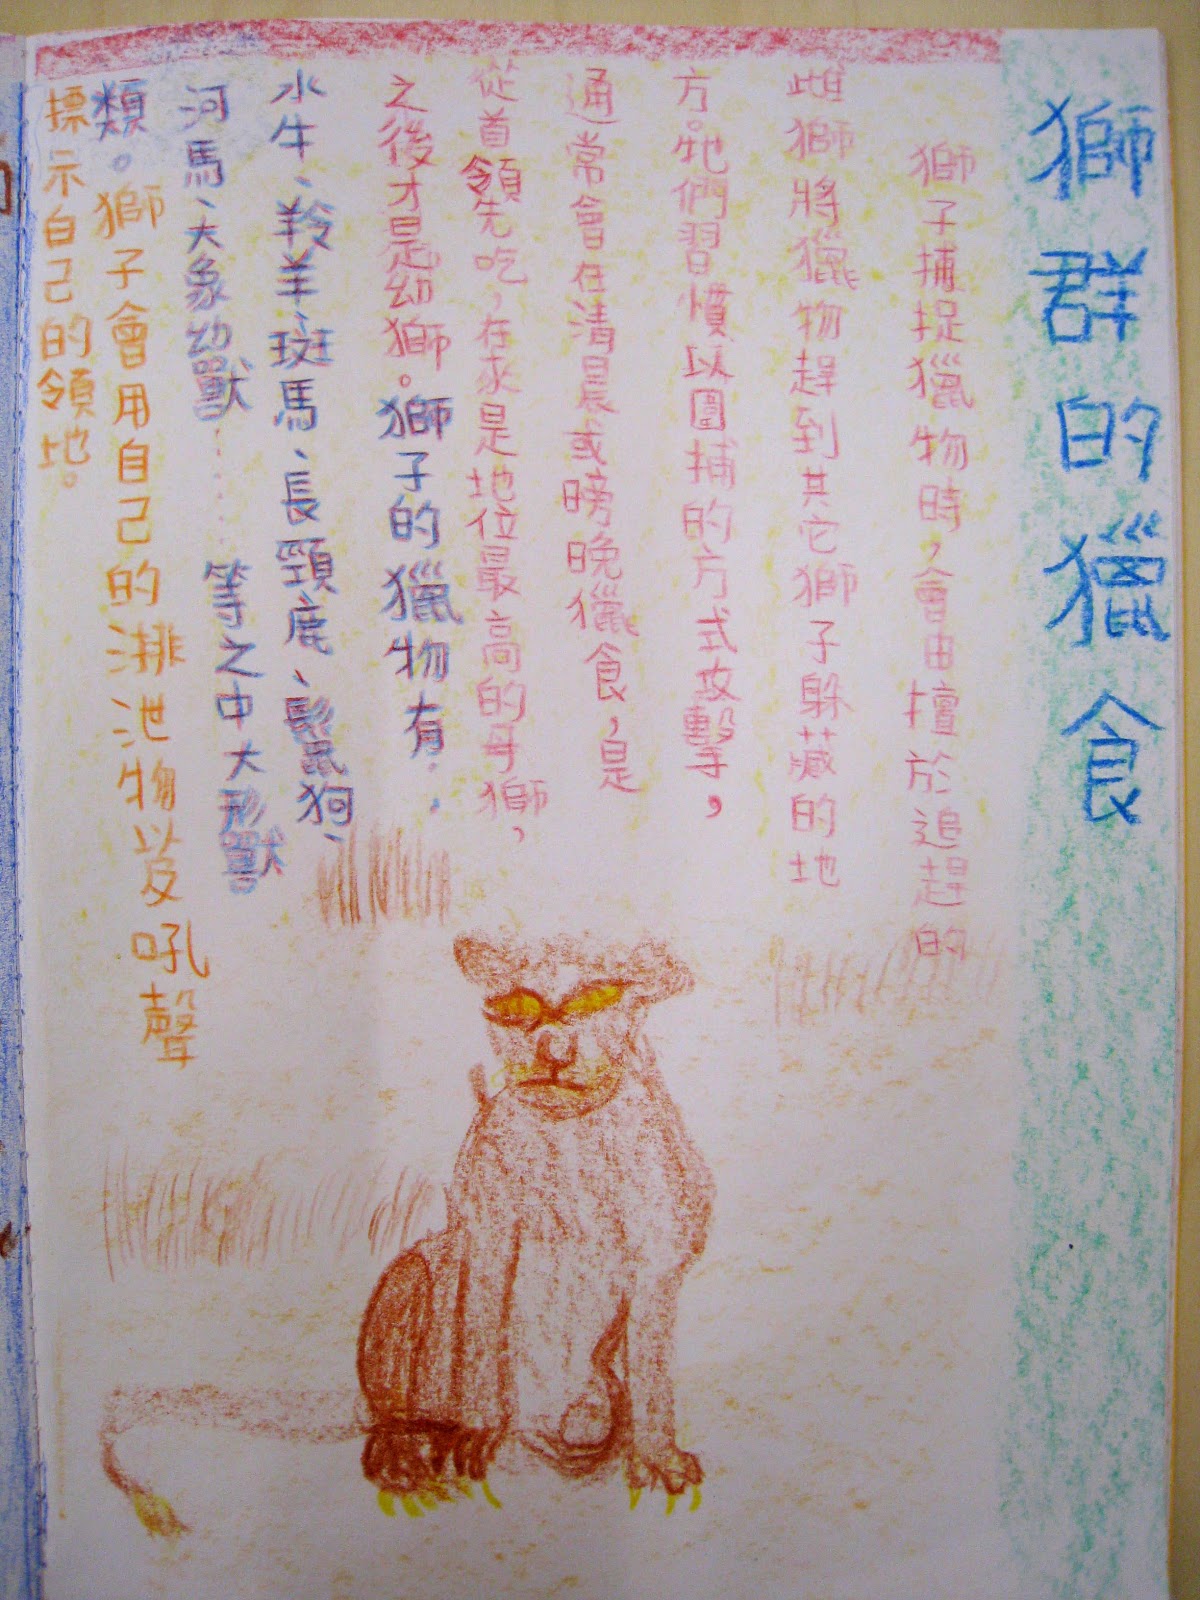 獅群的獵食
獅子捕捉獵物時，會由擅於追趕的
雌獅將獵物趕到其它獅子躲藏的地
方。牠們習慣以圍捕的方式攻擊，
通常會在清晨或螃晚獵食，是
從首領先吃，在來是地位最高的母獅，
之後才是幼獅。獅子的獵物有..
水牛、羚羊、斑馬、長頸鹿、鬣狗、
河馬、大象幼獸……等之中大形獸
類。獅子會用自己的排泄物以及吼聲
標示自己的領地。